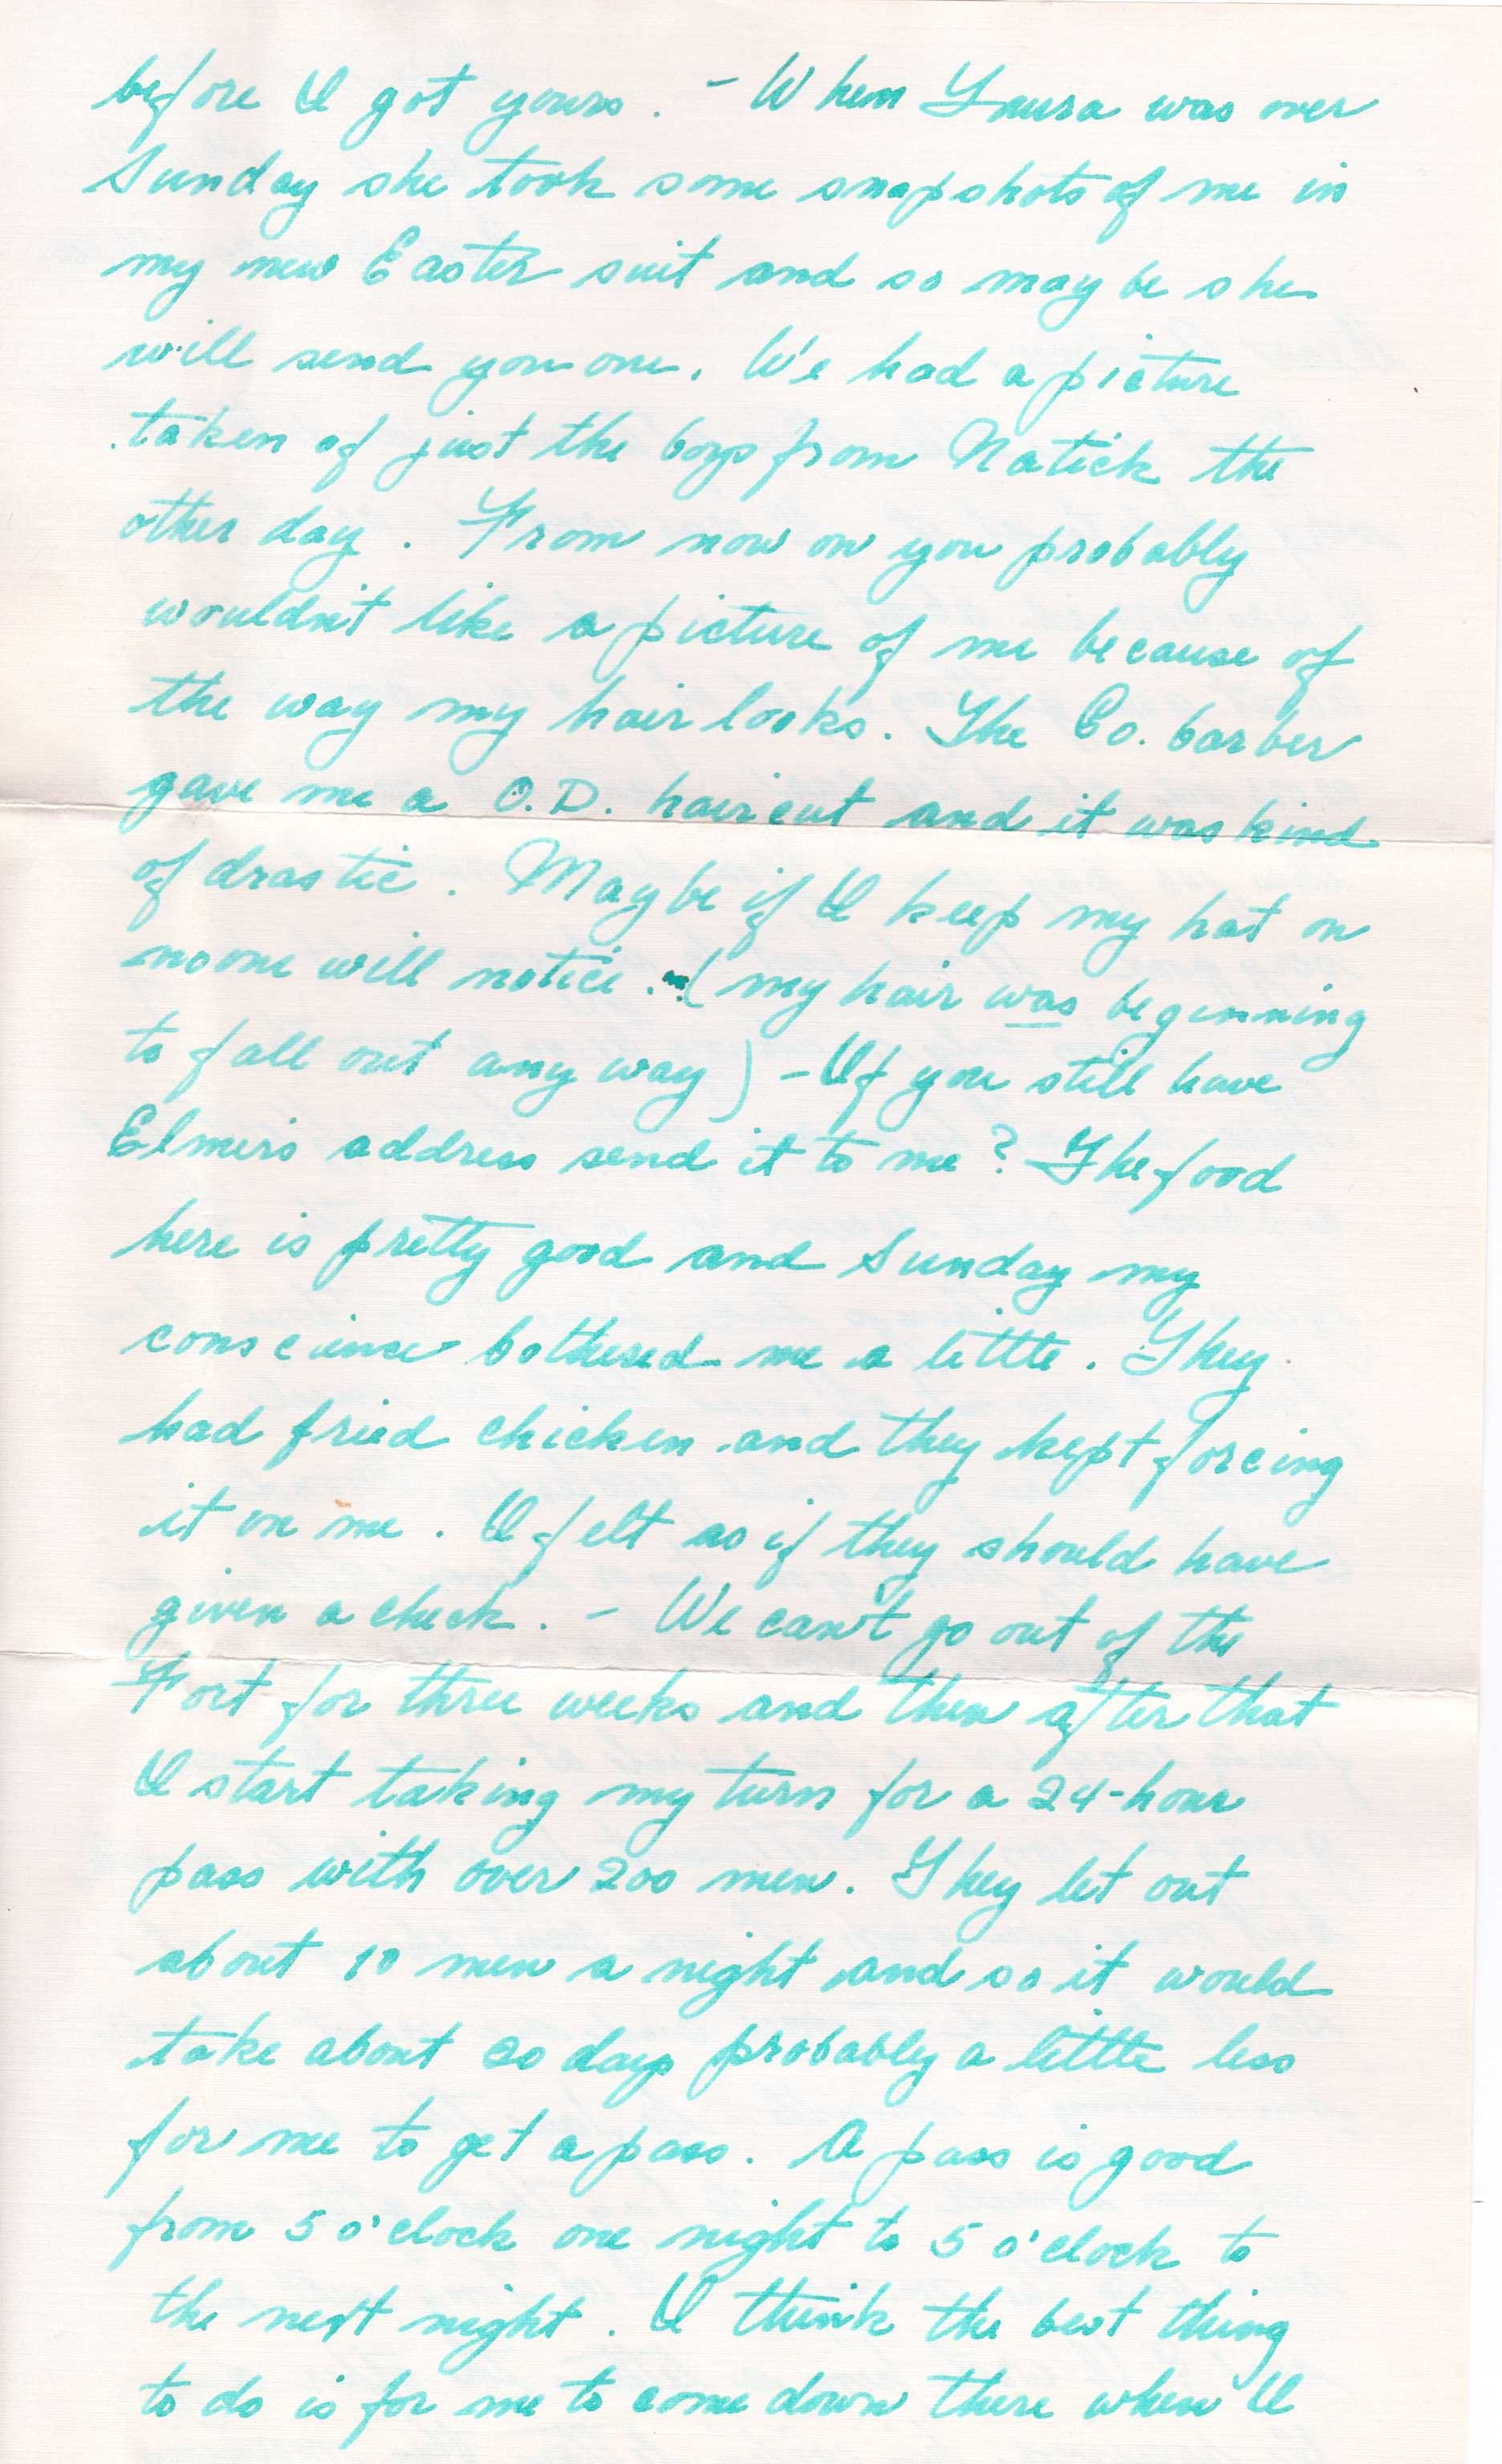 before I got yours. - When Laura was over
Sunday she took some snapshots of me in
my new Easter suit and so maybe she
will send you one. We had a picture
taken of just the boys from Natick the
other day. From now on you probably
wouldn't like a picture of me because of
the way my hair looks. The Co. barber
gave me a O.D. haircut and it was kind
of drastic. Maybe if I keep my hat on
no one will notice. (my hair was beginning
to fall out any way) - If you still have
Elmer's address send it to me? The food
here is pretty good and Sunday my
conscience bothered me a little. They
had fried chicken and they kept forcing
it on me. I felt as if they should have
given a check. - We can't go out of the
Fort for three weeks and then after that
I start taking my turn for a 24-hour
pass with over 200 men. They let out
about 10 men a night and so it would
take about 20 days probably a little less
for me to get a pass. A pass is good
from 5 o'clock one night to 5 o'clock to
the next night. I think the best thing
to do is for me to come down there when I